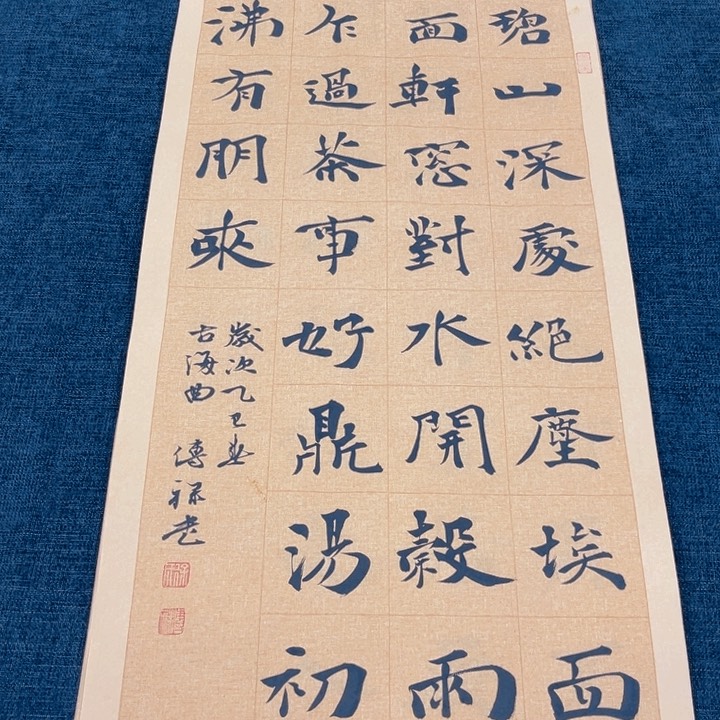 碧山深處絕塵埃面
面軒窓對水開穀雨
乍過茶事好鼎湯初
沸有朋來
歲次乙巳春
古海曲傳